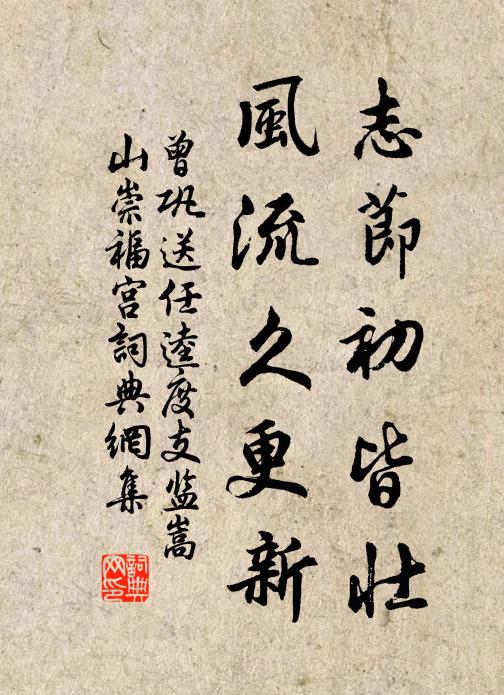 志節初皆壯
風流久更新
曾巩送任逵度支监嵩
山崇福宮詞典網集
詞典
网印